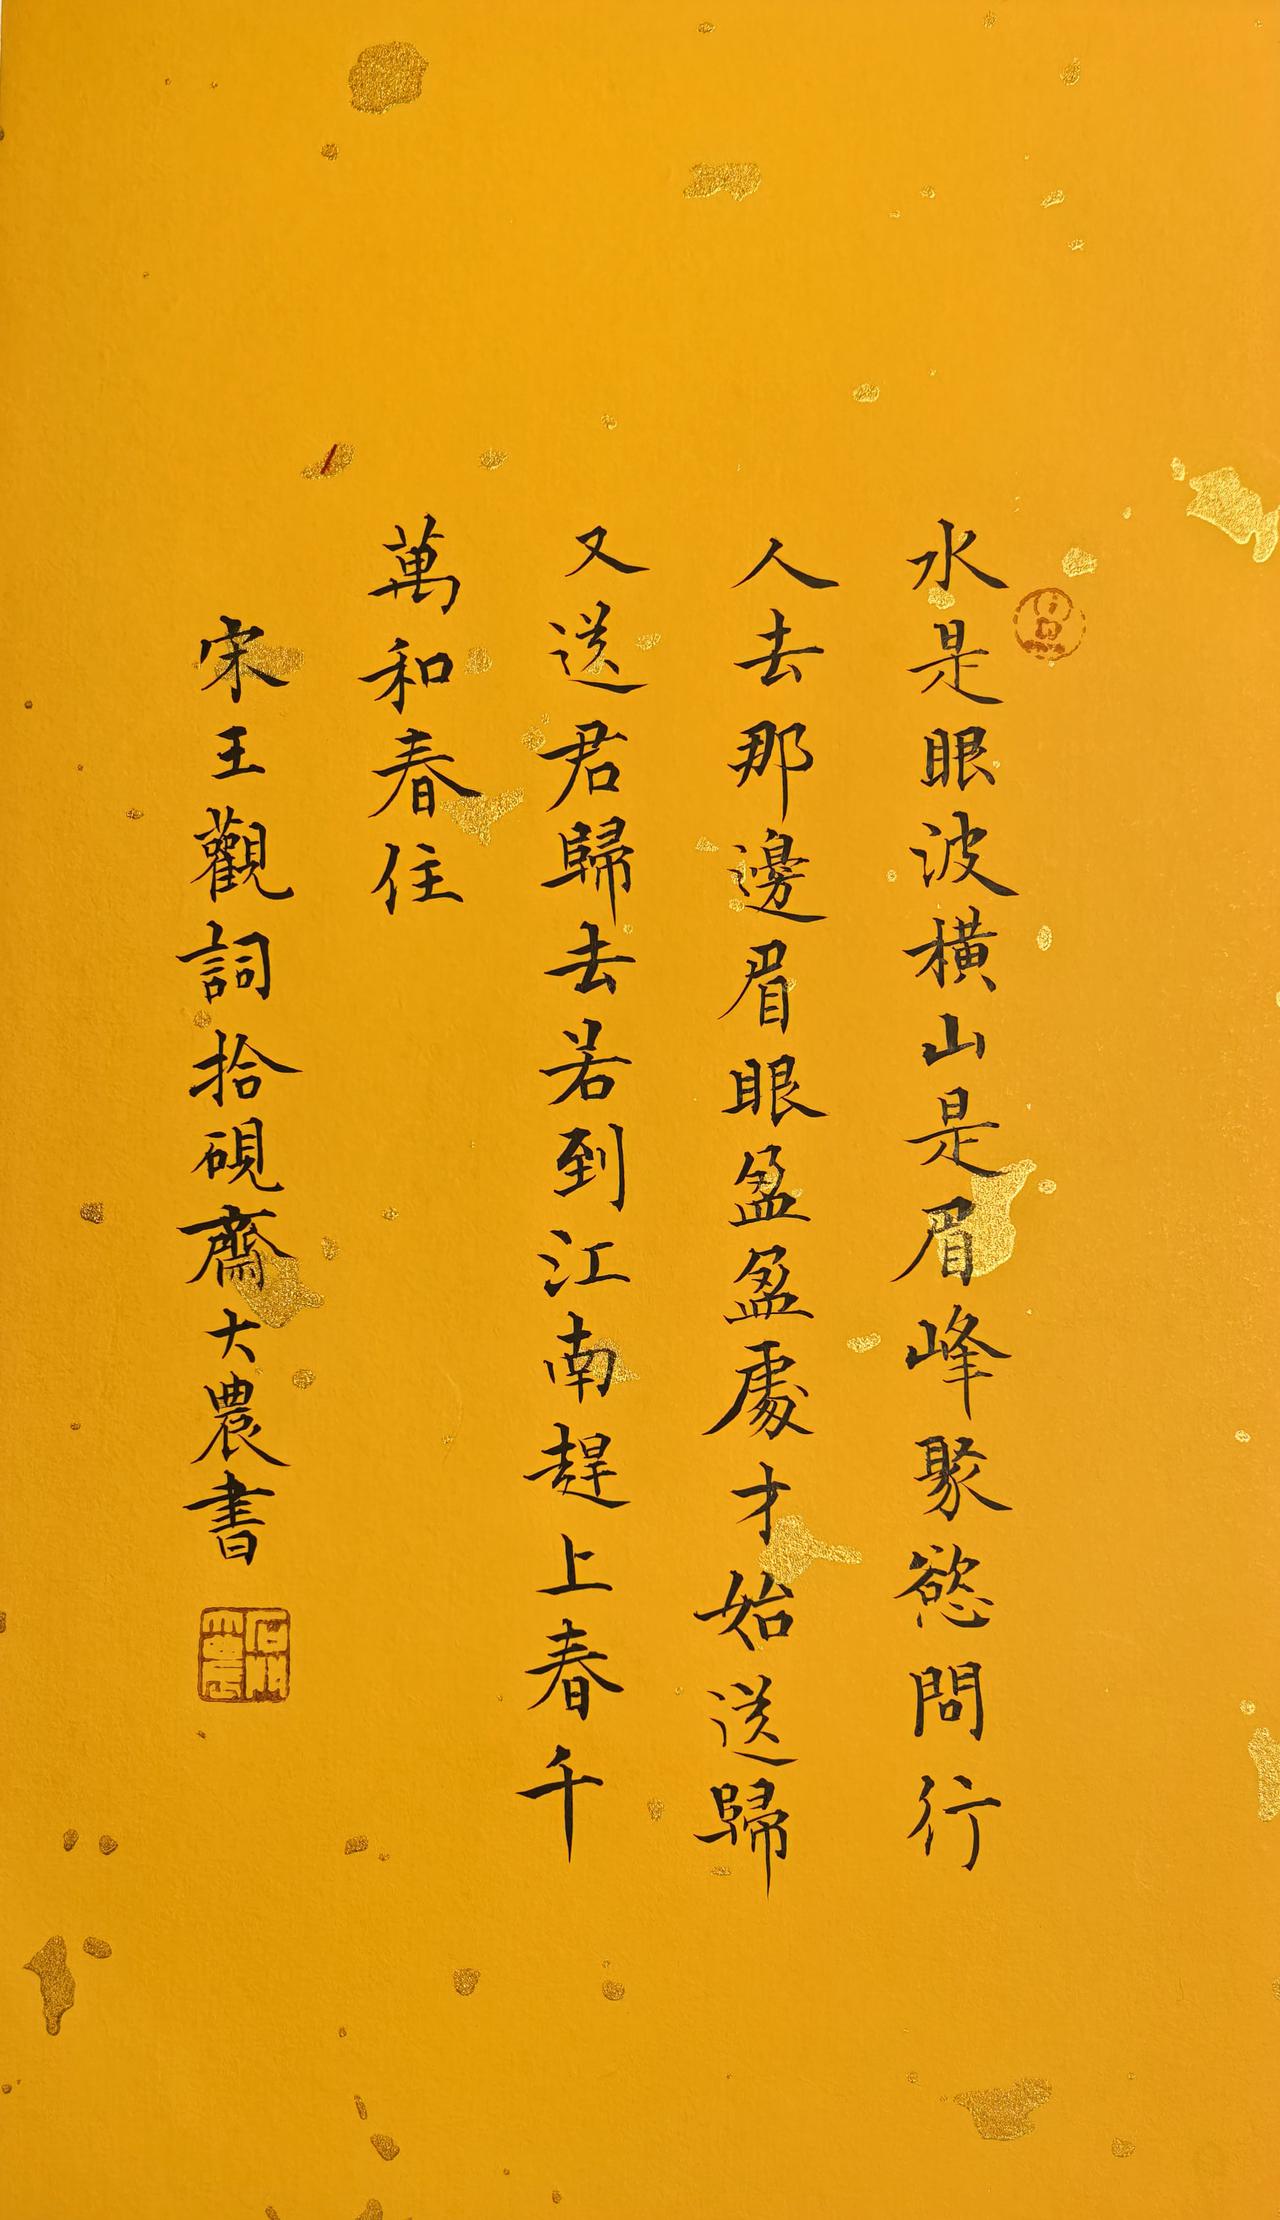 水是眼波橫山是眉峰聚慾問行
人去那邊眉眼盈盈處才始送歸
又送君歸去若到江南趕上春千
萬和春住
宋王觀詞拾硯齋大農書